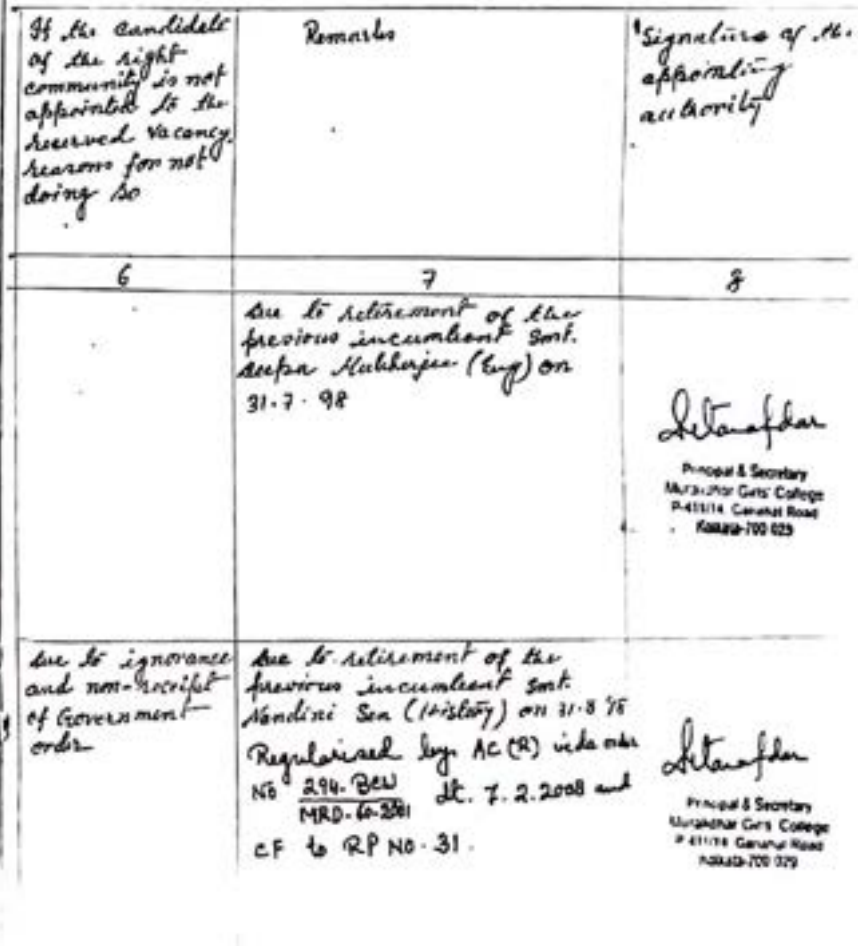 If the candidate
of the right
community is not
appointed to the
reserved vacancy.
reasons for not
doing so
Remarks
Signature of the
appointing
authority
6
7
8
due to retirement of the
previous incumbent Smt.
Mukherjee (Eng) on
31.7.98
Principal & Secretary
Muralidhar Girls' College
P-411/14 Gariahat Road
Kolkata-700 029
due to ignorance
and non-receipt
of Government
order
due to retirement of the
previous incumbent Smt.
Nandini Sen (History) on
Regularised by AC (R) vide order
No 294-BCW dt. 7.2.2008 and
MRD-60-2001
CF to RP NO. 31.
Principal & Secretary
Muralidhar Girls College
P 411/14 Gariahat Road
Kolkata-700 029